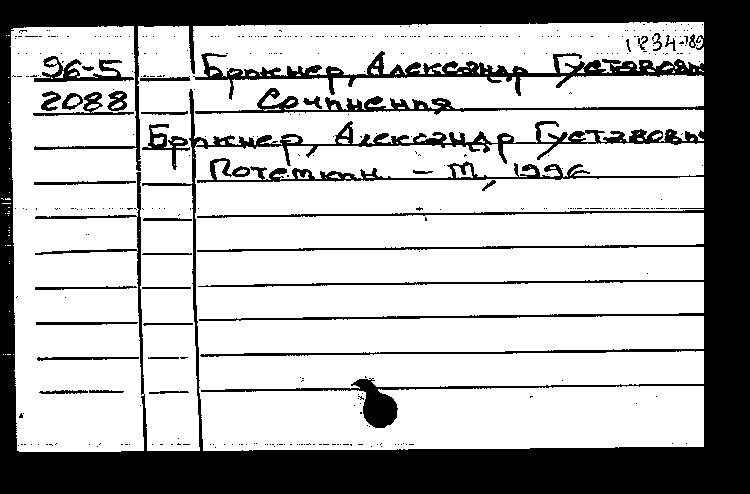 1834-189
96-5 Брикнер, Александр Густавович
2088 Сочинения
Брикнер, Александр Густавович
Потемкин. – М, 1996